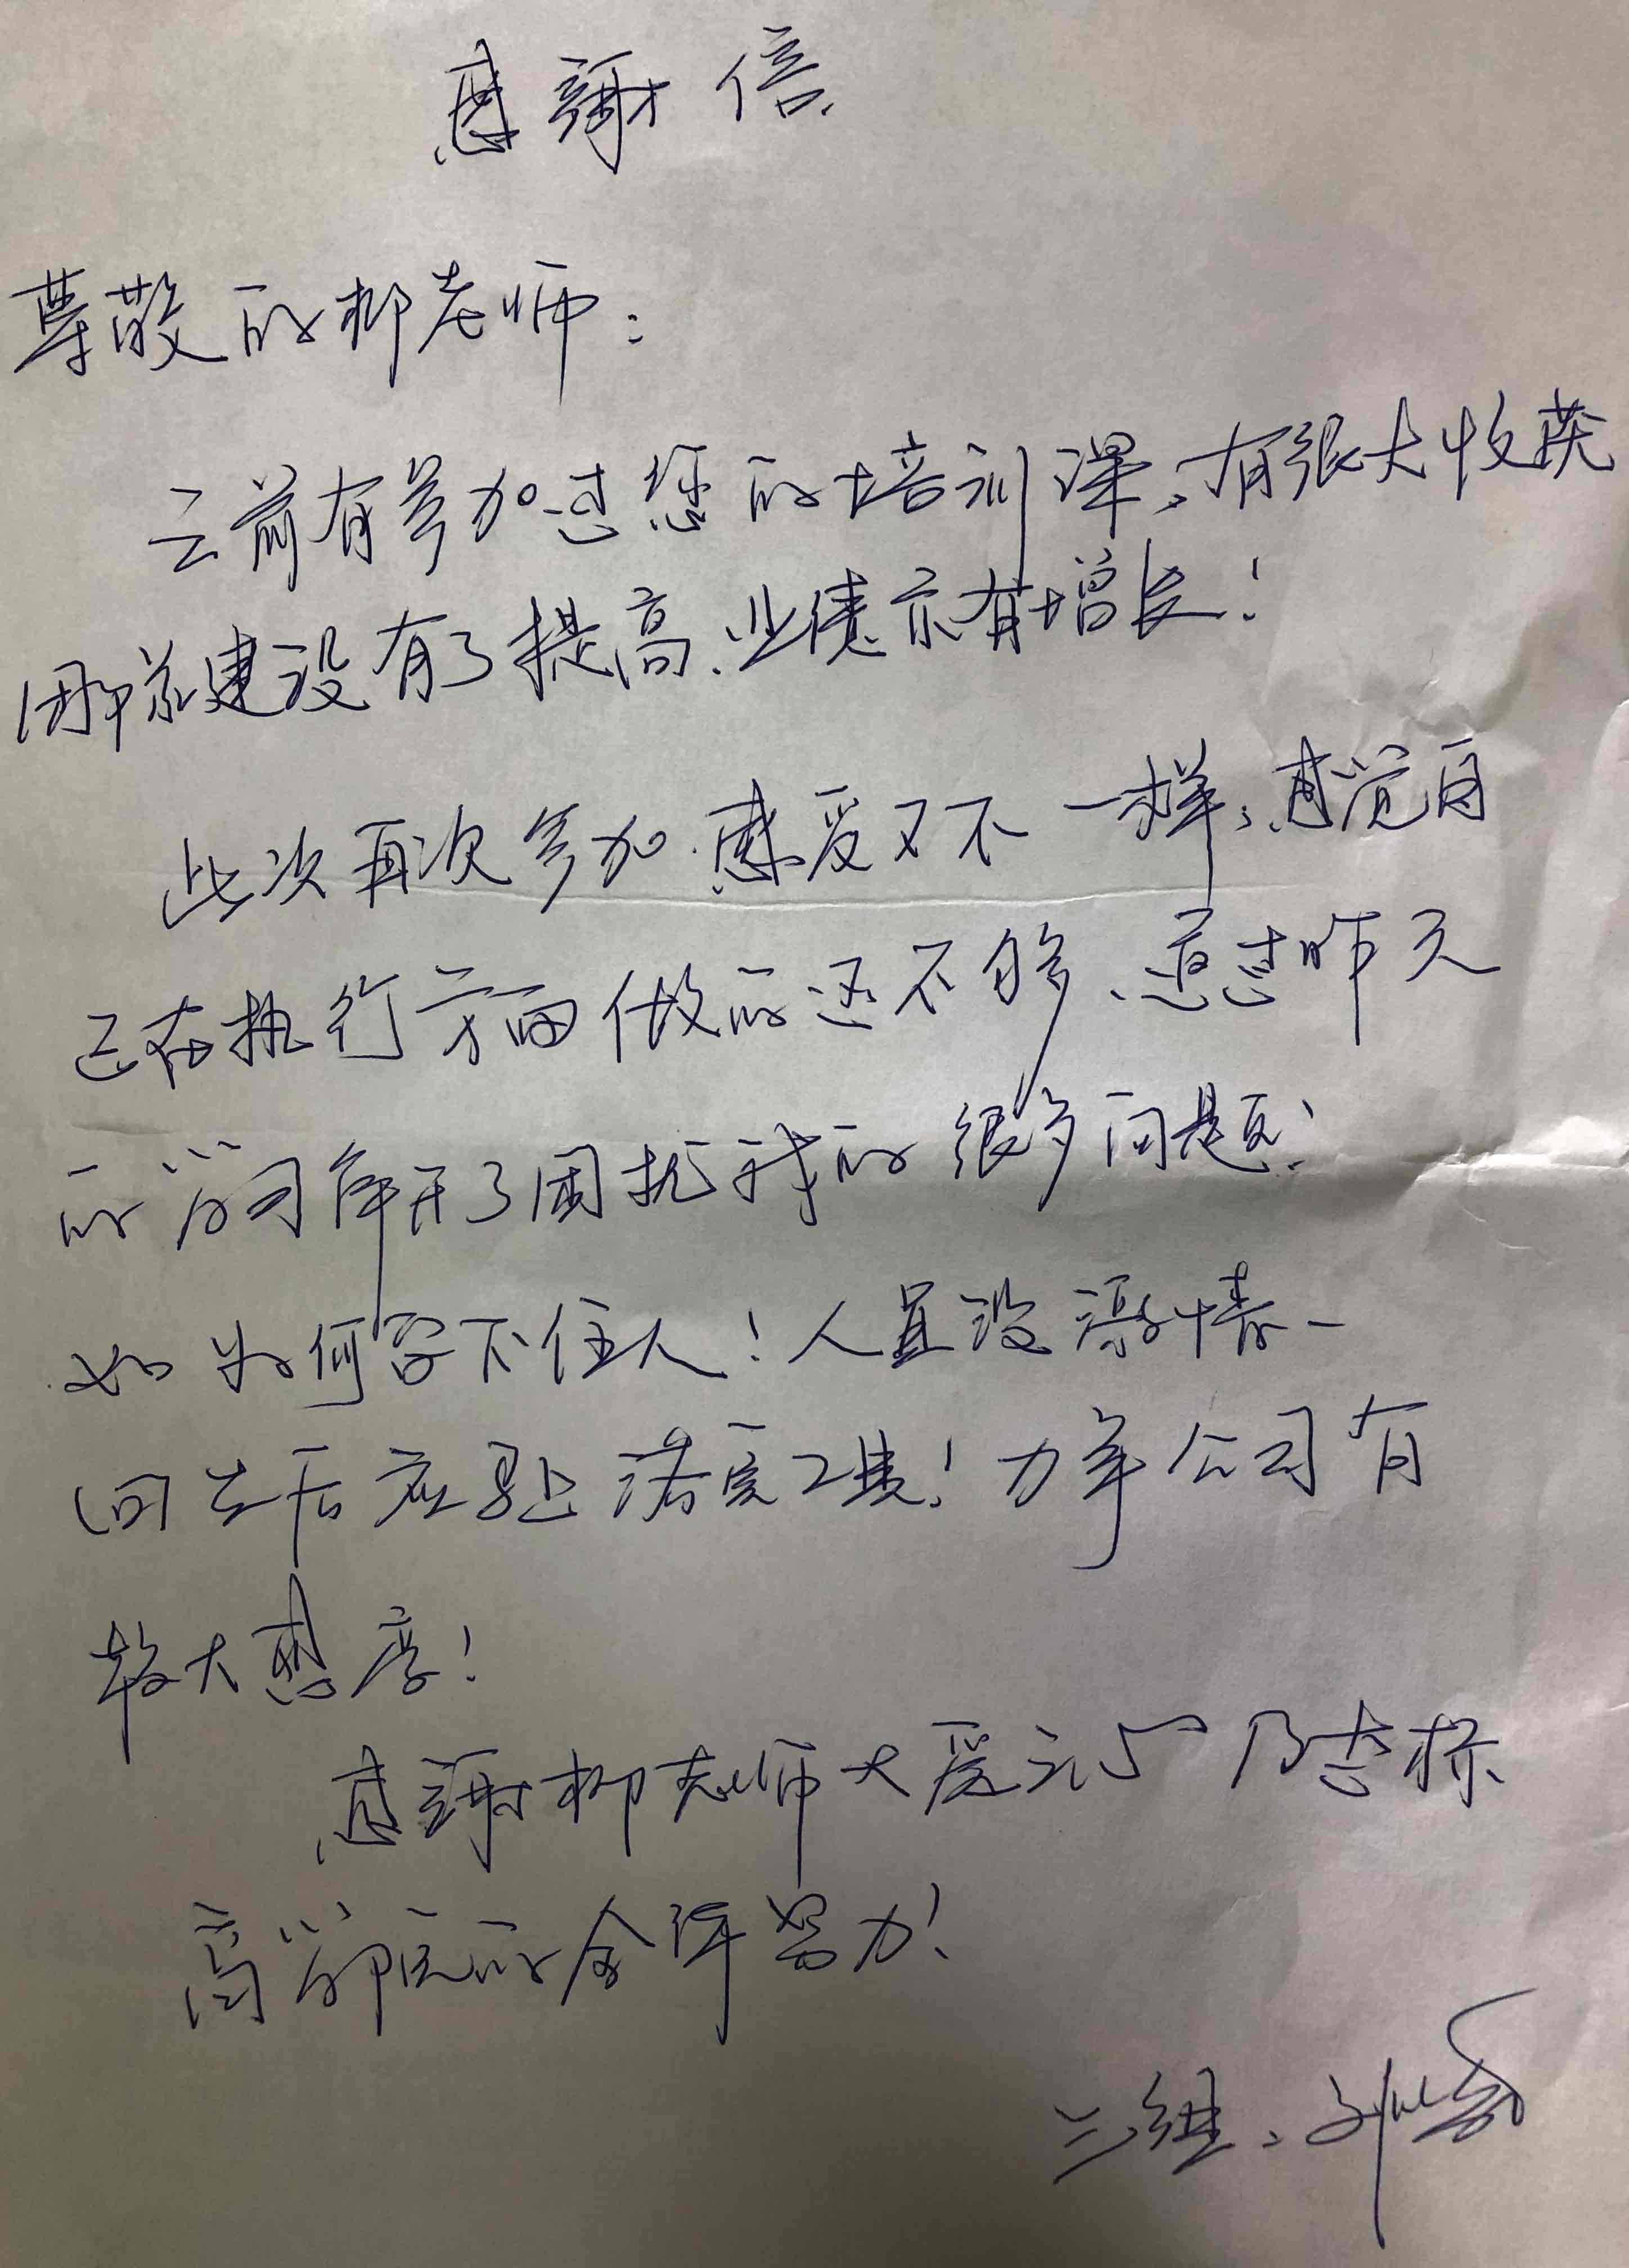 感謝信
尊敬的柳老师：
之前有参加过您的培训课，有很大收获
团队建设有了提高、业绩亦有增长！
此次再次参加．感受又不一样，感觉自
己在执行方面做的还不够、通过昨天
的学习解开了困扰我的很多问题！
如为何留不住人！人员没激情一
回去后应  落实工具！力争公司有
较大  ！
感謝柳老师大爱  及志标
高学院的全体努力！
三组、刘